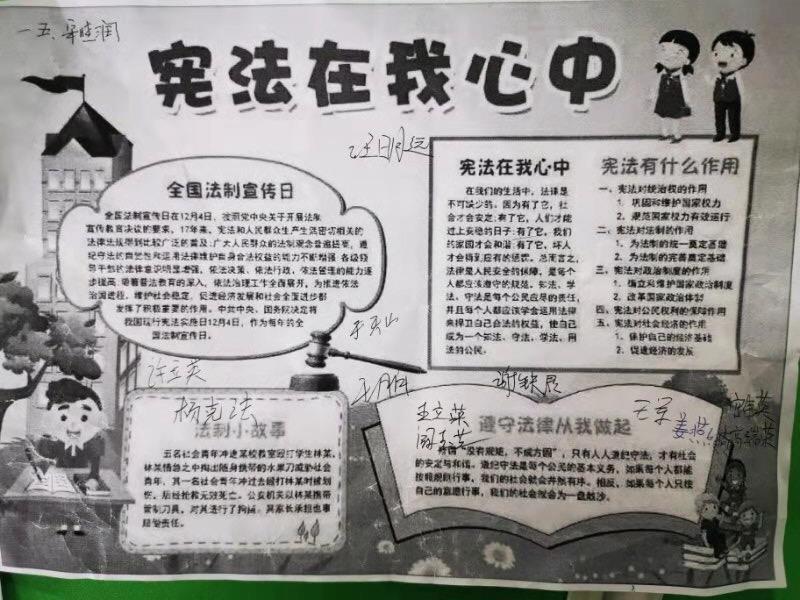 一五、
宪法在我心中
全国法制宣传日
全国法制宣传日在12月4日，按照党中央关于开展法制
宣传教育决议的要求，17年来，宪法和人民群众生产生活密切相关的
法律法规得到比较广泛的普及；广大人民群众的法制观念普遍提高，遵
纪守法的自觉性和运用法律维护自身合法权益的能力不断增强；各级领
导干部的法律意识明显增强，依法决策、依法行政、依法管理的能力逐
步提高；随着普法教育的深入，依法治理工作全面展开，为推进依法
治国进程，维护社会稳定，促进经济发展和社会全面进步都
发挥了积极重要的作用。中共中央、国务院决定将
我国现行宪法实施日12月4日，作为每年的全
国法制宣传日。
宪法在我心中
在我们的生活中，法律是
不可缺少的。因为有了它，社
会才会安定；有了它，人们才能
过上安稳的日子；有了它，我们
的家园才会和谐；有了它，坏人
才会得到应有的惩罚。总而言之，
法律是人民安全的保障，是每个
人都应该遵守的规范。知法、学
法、守法是每个公民应尽的责任，
并且每个人都应该学会运用法律
来捍卫自己合法的权益，使自己
成为一个知法、守法、学法、用
法的公民。
宪法有什么作用
一、宪法对统治权的作用
1、巩固和维护国家权力
2、规范国家权力有效运行
二、宪法对法制的作用
1、为法制的统一奠定基础
2、为法制的完善奠定基础
三、宪法对政治制度的作用
1、确立和维护国家政治制度
2、改革国家政治体制
四、宪法对公民权利的保障作用
五、宪法对社会经济的作用
1、保护自己的经济基础
2、促进经济的发展
许立英
杨克法
王立英
法制小故事
五名社会青年冲进某校教室殴打学生林某，
林某情急之中掏出随身携带的水果刀威胁社会
青年，其一名社会青年冲过去殴打林某时被划
伤，后经抢救无效死亡。公安机关以林某携带
管制刀具，对其进行了拘留。其家长承担也事
赔偿责任。
遵守法律从我做起
俗话“没有规矩，不成方圆”，只有人人遵纪守法，才有社会
的安定与和谐，遵纪守法是每个公民的基本义务，如果每个人都能
按规规则行事，我们的社会就会井然有序。相反，如果每个人只按
自己的意愿行事，我们的社会就会为一盘散沙。